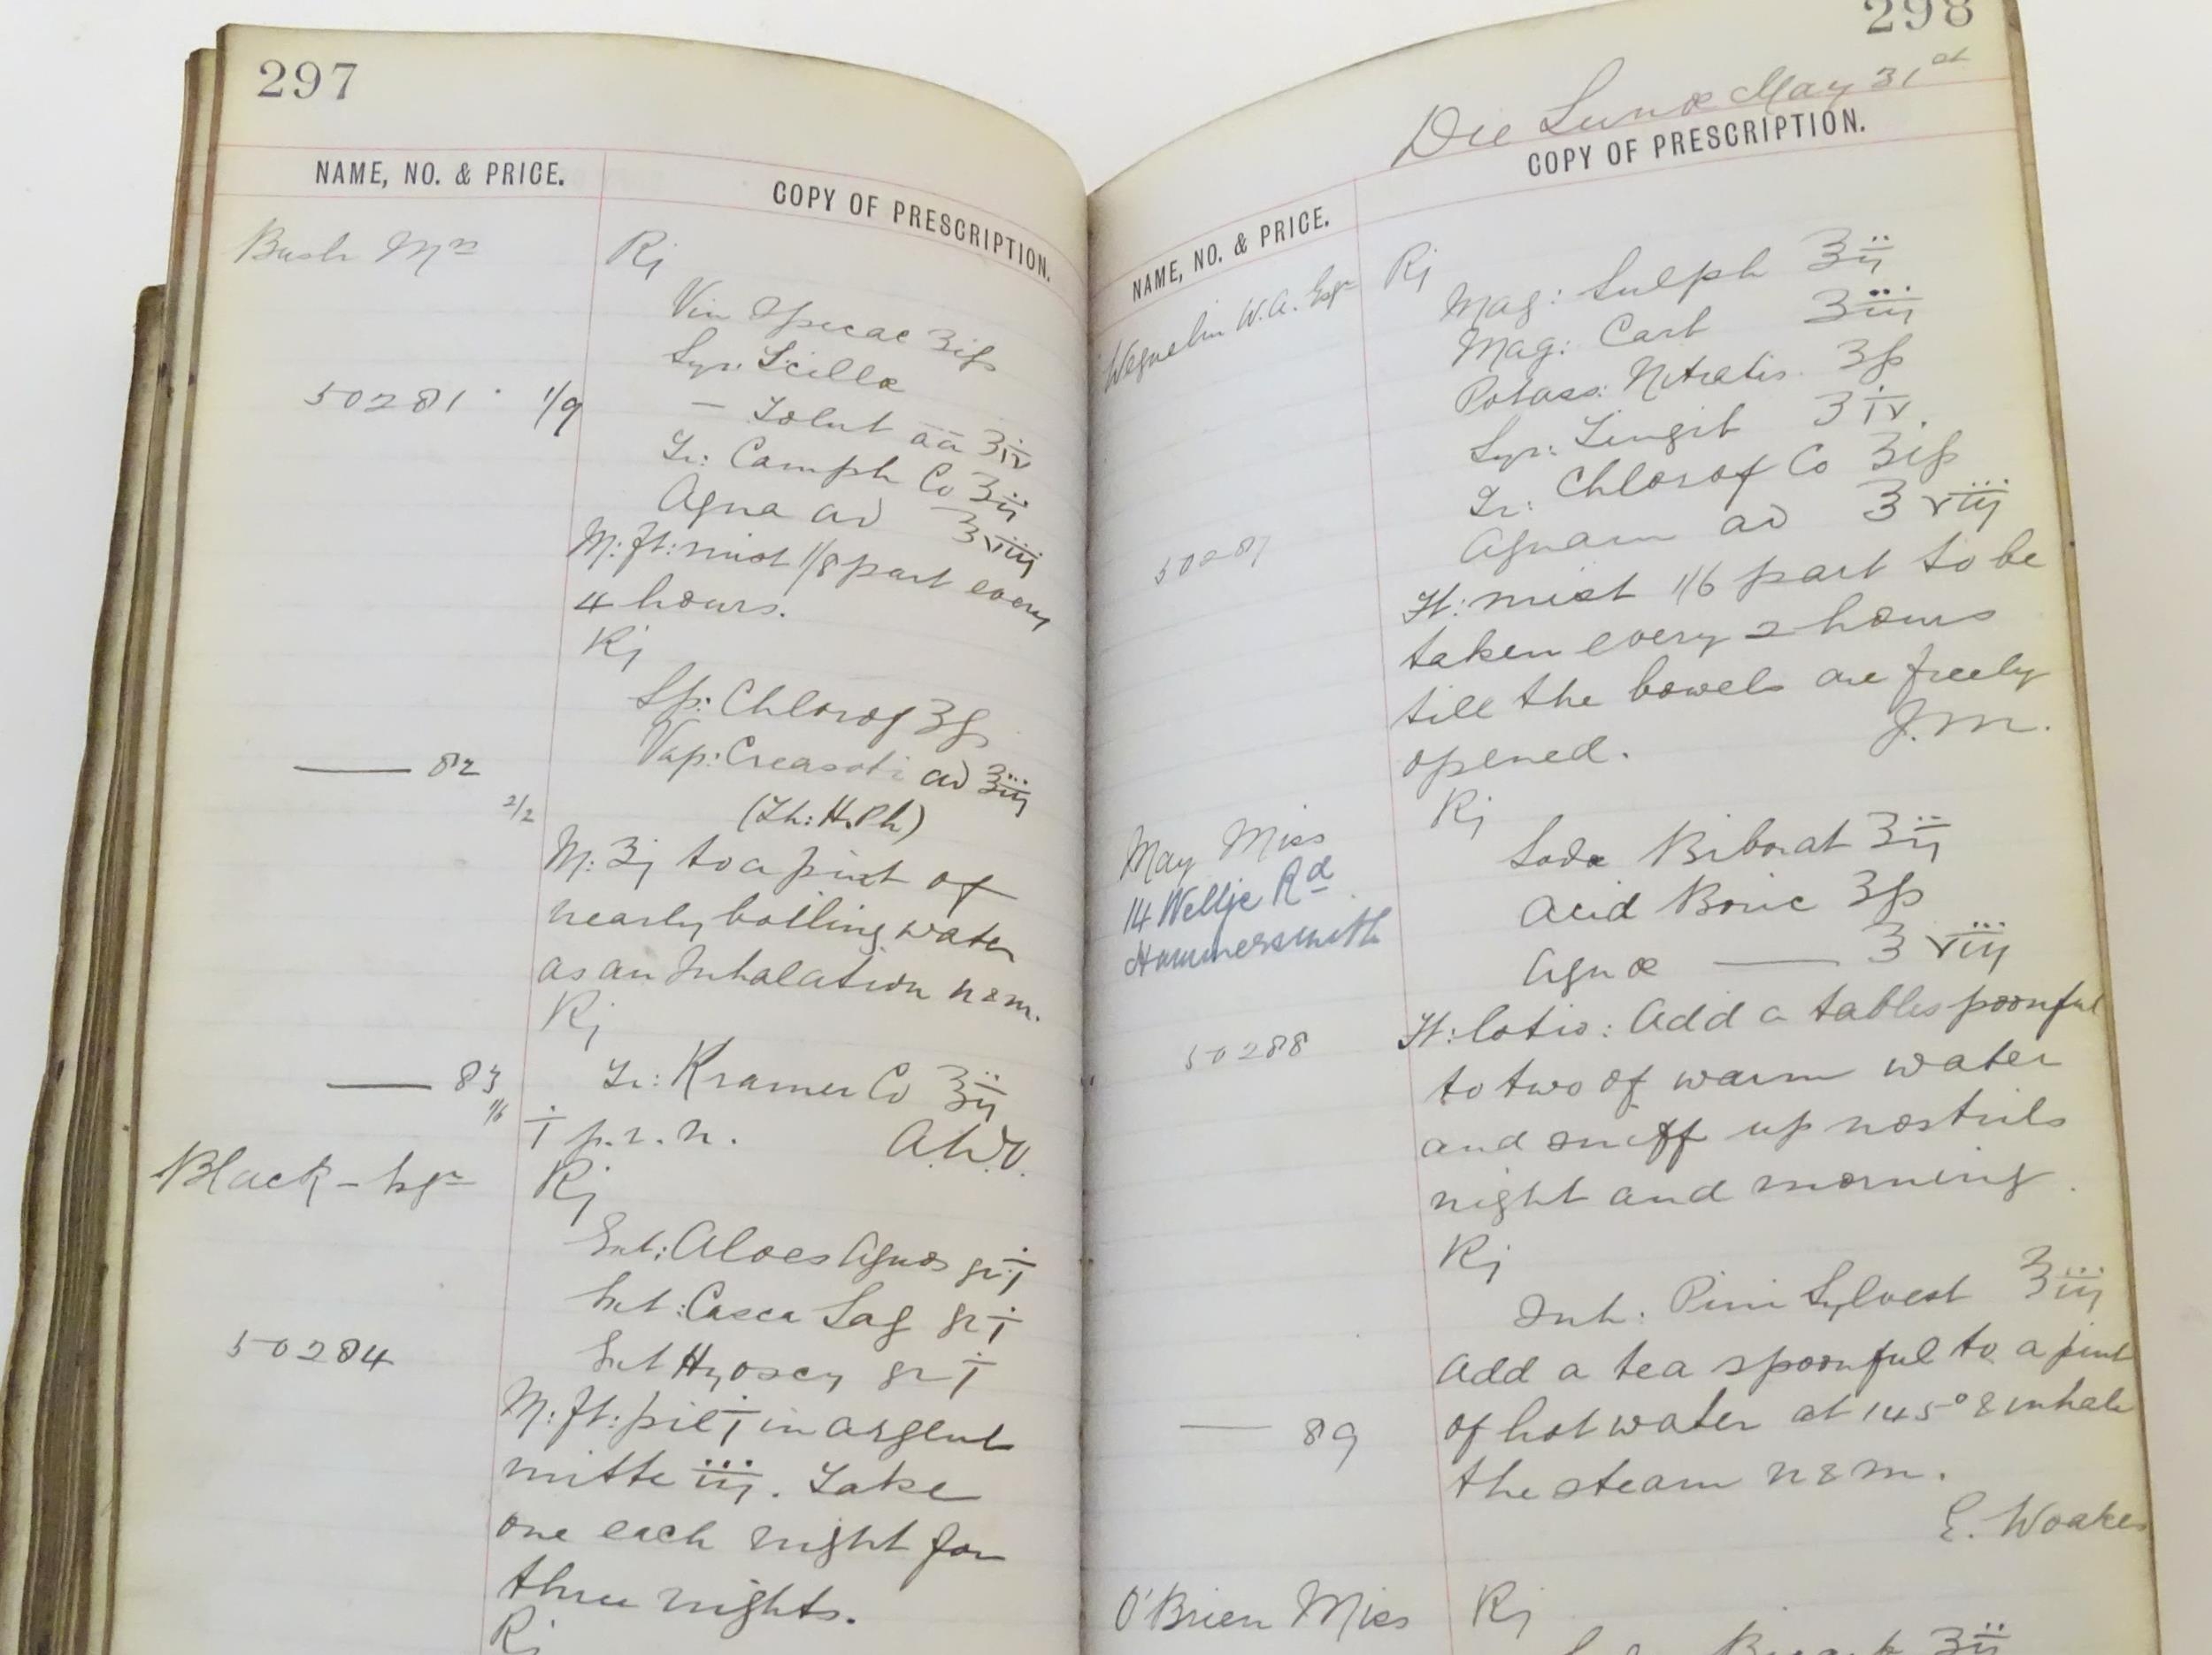 297
NAME, NO. & PRICE.
COPY OF PRESCRIPTION.
Bush Mrs
R
Vin Ipecac ʒifs
Syr: Scillæ
50281 · 1/9
— Tolut āā ʒiv
Tr: Camph Co ʒij
Aqua ad ℥viij
M: ft: mist 1/8 part every
4 hours.
R
Sp: Chlorof ʒfs
— 82
Vap: Creasoti ad ℥iij
2/2
(Th: H. Ph)
M: ʒj to a pint of
nearly boiling water
as an Inhalation n & m.
R
— 83
1/6
Tr: Kramer Co ʒij
j p.r.n.
Black - Esqr
R
Ext: Aloes Aquos gr j
Ext: Casca Sag gr j
50284
Ext Hyoscy gr j
M: ft: pil j in argent
mitte iij. Take
one each night for
three nights.
R
298
Die Lunæ May 31st
NAME, NO. & PRICE.
COPY OF PRESCRIPTION.
W.A. Esqr
R
Mag: Sulph ʒij
Mag: Carb ʒiij
Potass: Nitratis. ʒfs
Syr: Zingib ʒiv.
Tr: Chlorof Co ʒifs
50287
Aquam ad ℥viij
Ft: mist 1/6 part to be
taken every 2 hours
till the bowels are freely
opened. J.M.
May Miss
14 Wellje Rd
Hammersmith
R
Sodæ Biborat ʒij
Acid Boric ʒfs
Aquæ — ℥viij
50288
Ft: lotio: Add a tablespoonful
to two of warm water
and sniff up nostrils
night and morning.
R
Inh: Pini Sylvest ʒiij
Add a tea spoonful to a pint
— 89
of hot water at 145° & inhale
the steam n & m.
E. Woakes
O'Brien Miss
R